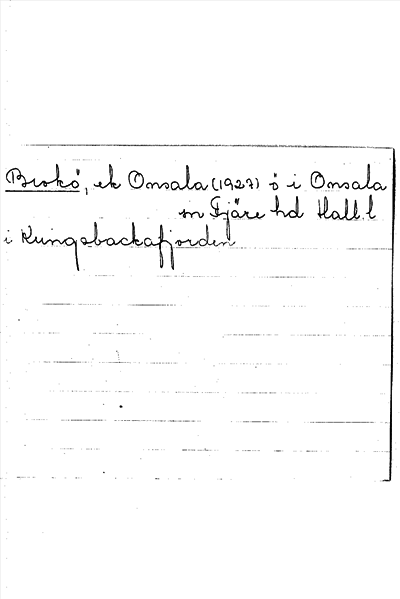 Brokö, ek Onsala (1927) ö i Onsala
sn Fjäre hd Hall. l
i Kungsbackafjorden